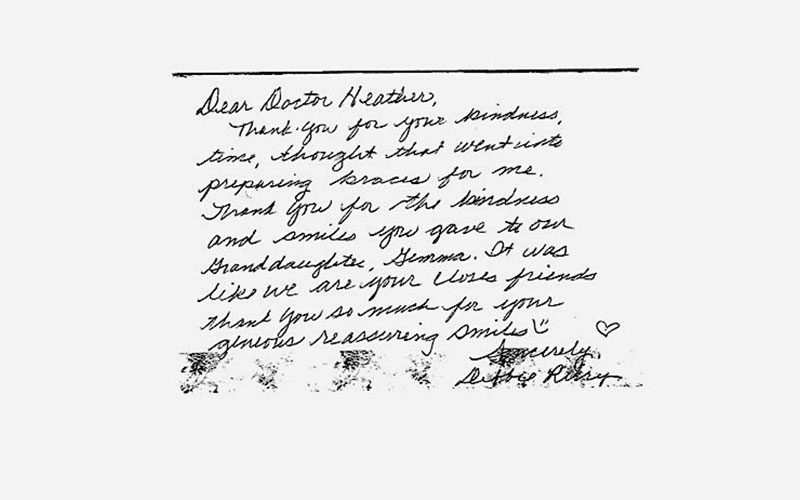 Dear Doctor Heather,
Thank you for your kindness,
time, thought that went into
preparing braces for me.
Thank you for the kindness
and smiles you gave to our
Granddaughter, Gemma. It was
like we are your closes friends
thank you so much for your
genious reassuring smiles
Sincerely,
Debbie